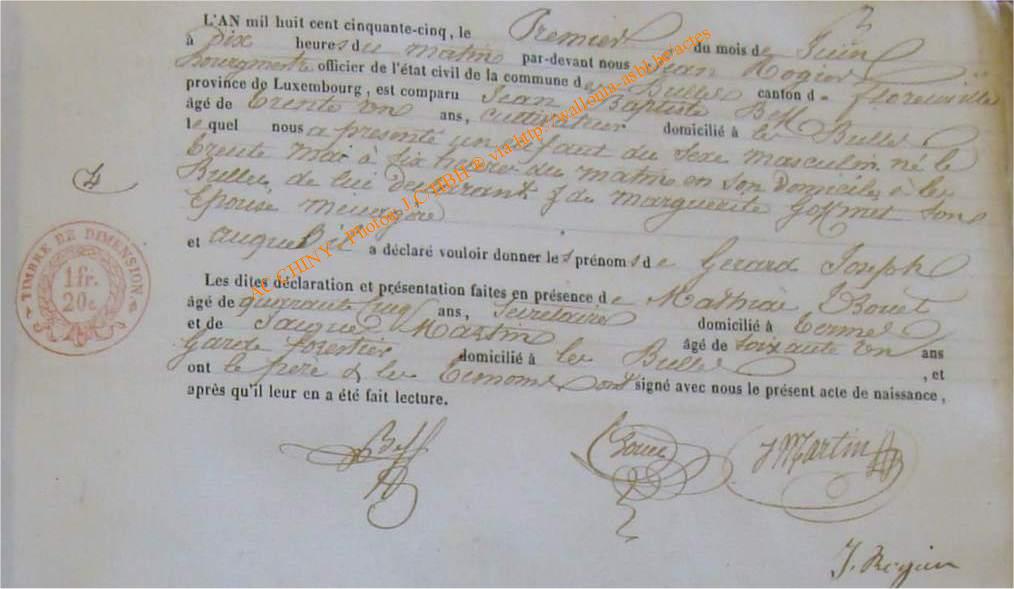 L'AN mil huit cent cinquante-cinq, le Premier du mois de Juin
à Dix heures du matin par-devant nous Jean Rogier
Bourgmestre officier de l'état civil de la commune de Les Bulles canton de Florenville
province de Luxembourg, est comparu Jean Baptiste Beff
âgé de trente un ans, cultivateur domicilié à les Bulles
lequel nous a présenté un enfant du sexe masculin né le
trente mai à six heures du matin en son domicile, à les
Bulles, de lui déclarant & de marguerite Gofflmet sons
Epouse ménagère
et auquel il a déclaré vouloir donner les prénoms de Gerard Joseph
Les dites déclaration et présentation faites en présence de Mathias Bouct
âgé de quarante cinq ans, Secretaire domicilié à termes
et de Jacque Martin âgé de soixante un ans
Garde forestier domicilié à les Bulles , et
ont le père & les témoins ont signé avec nous le présent acte de naissance,
après qu'il leur en a été fait lecture.
AC CHINY - Photos J.C HBH ® via http://wallonia-asbl.be/actes
TIMBRE DE DIMENSION
1 fr.
20 c
Beff
J Martin
J. Rogier